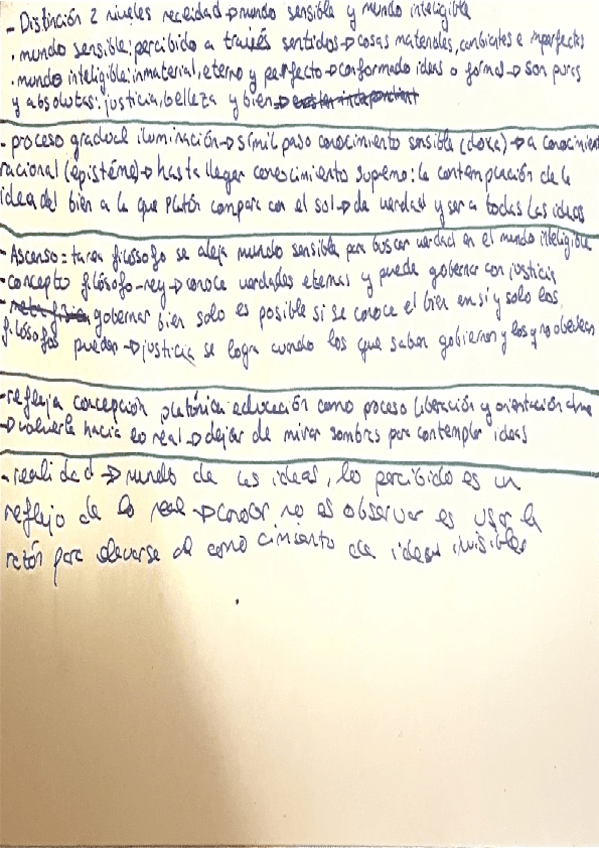 - Distinción 2 niveles realidad → mundo sensible y mundo inteligible
· mundo sensible: percibido a través sentidos → cosas materiales, cambiates e imperfectas
· mundo inteligible: inmaterial, eterno y perfecto → conformado ideas o formas → son puras
y absolutas: justicia, belleza y bien →
- proceso gradual iluminación → símil paso conocimiento sensible (doxa) → a conocimient
racional (epistéme) → hasta llegar conocimiento supremo: la contemplación de la
idea del bien a la que Platón compara con el sol → da verdad y ser a todas las ideas
- Ascenso = tarea filósofo se aleja mundo sensible para buscar verdad en el mundo inteligible
- concepto filósofo-rey → conoce verdades eternas y puede gobernar con justicia
- gobernar bien solo es posible si se conoce el bien en sí y solo los
filósofos pueden → justicia se logra cuando los que saben gobiernan y los q no obedecen
- refleja concepción platónica educación como proceso liberación y orientación alma
→ volverla hacia lo real → dejar de mirar sombras para contemplar ideas
- realidad → mundo de las ideas, lo percibido es un
reflejo de lo real → conocer no es observar es usar la
razón para elevarse al conocimiento de ideas invisibles